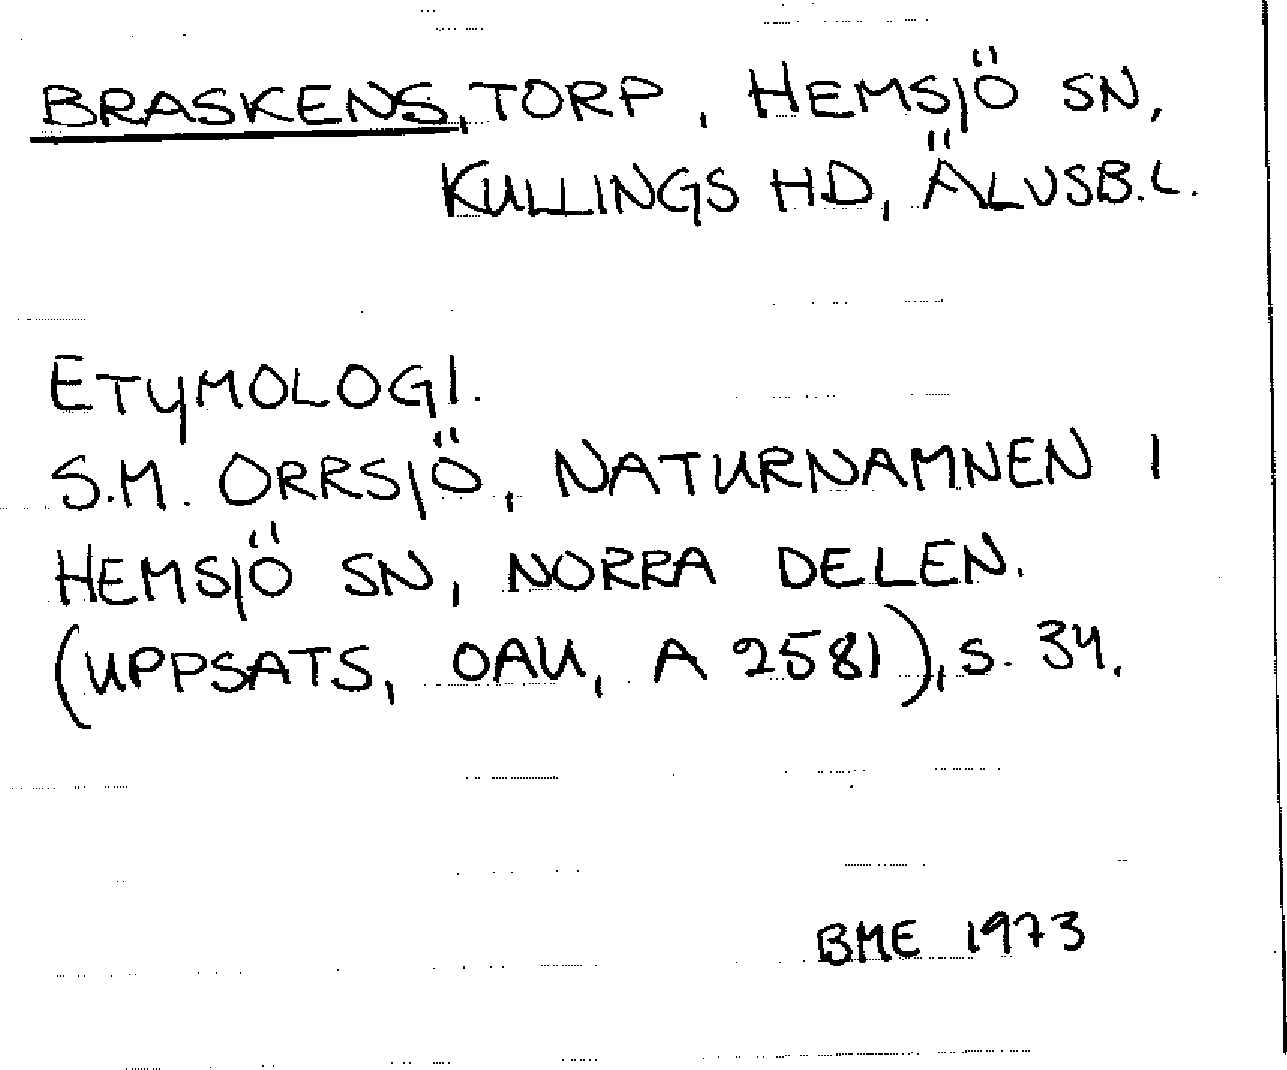 BRASKENS, TORP, HEMSJÖ SN,
KULLINGS HD, ÄLVSB.L.
ETYMOLOGI.
S.M. ORRSJÖ, NATURNAMNEN I
HEMSJÖ SN, NORRA DELEN.
(UPPSATS, OAU, A 2581), S. 34.
BME 1973